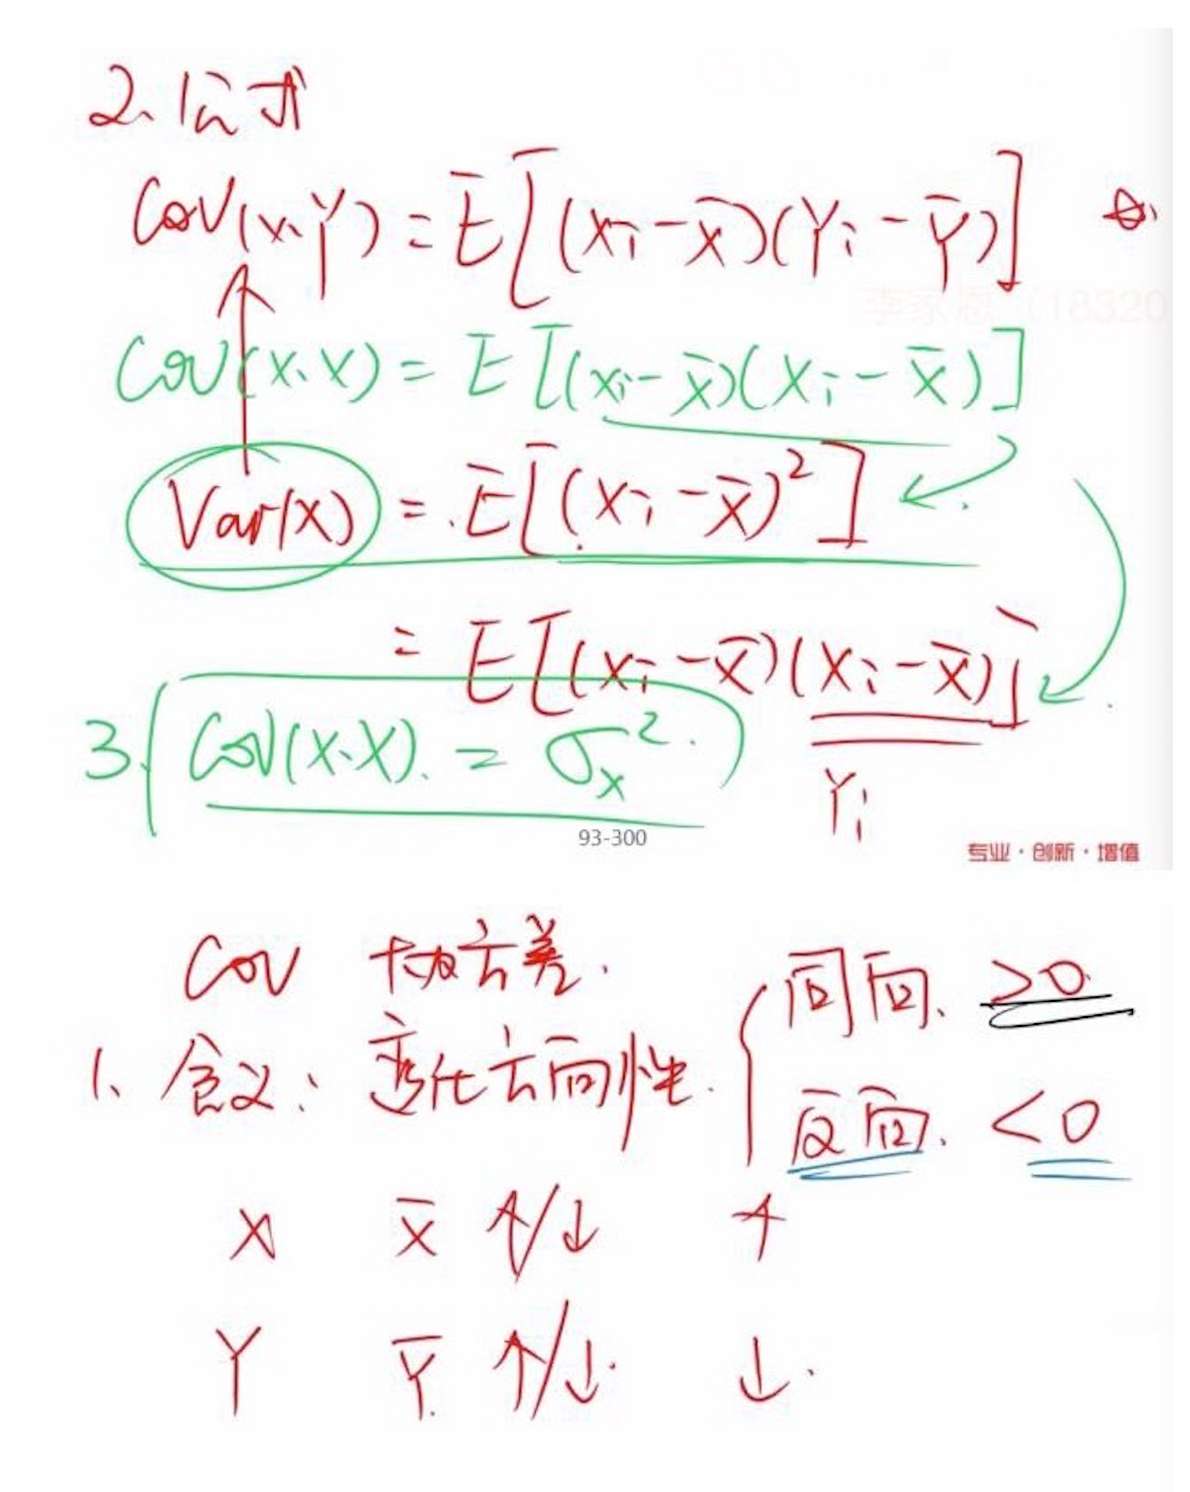 2、公式
Cov(X、Y) = E[(Xi - X̄)(Yi - Ȳ)] ☆
李家恩 (18320
Cov(X、X) = E[(Xi - X̄)(Xi - X̄)]
Var(X) = E[(Xi - X̄)²]
= E[(Xi - X̄)(Xi - X̄)]
3、Cov(X、X) = σx²
Yi
93-300
专业·创新·增值
Cov 协方差. 同向、>0
1、含义: 变化方向性. 反向、<0
X X̄ ↑/↓ ↑
Y Ȳ ↑/↓ ↓